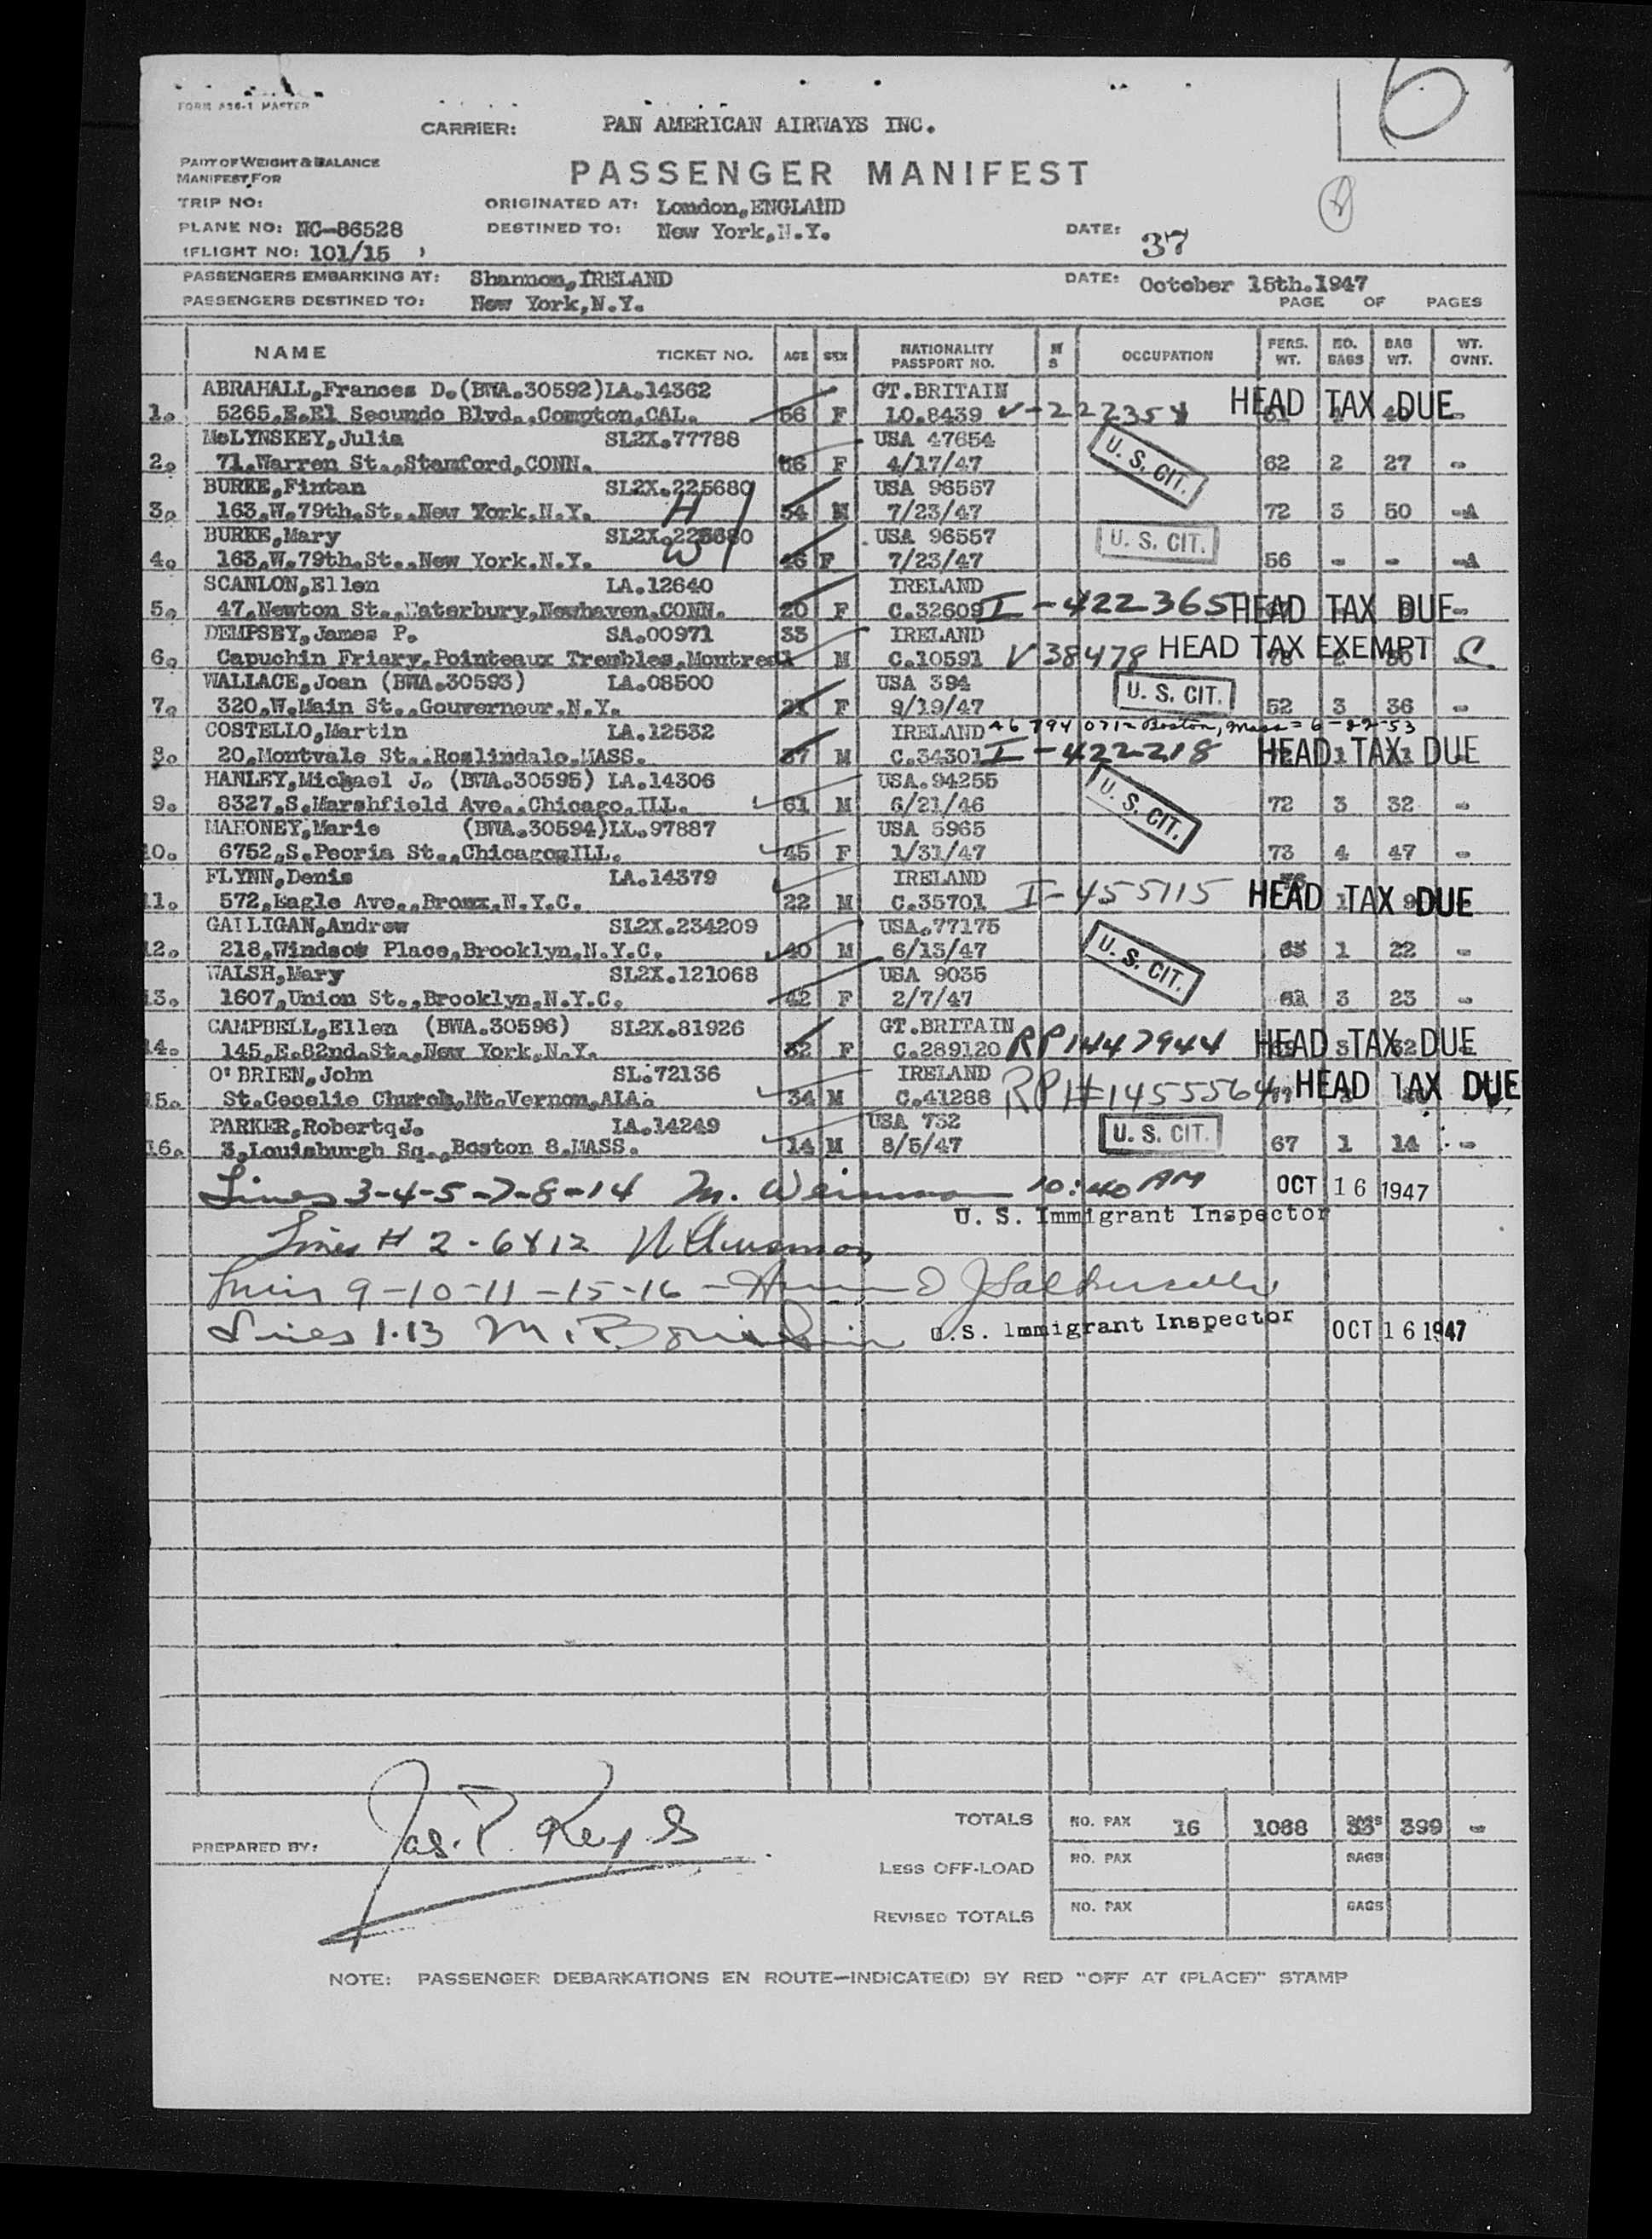 6
FORM
CARRIER: PAN AMERICAN AIRWAYS INC.
PART OF WEIGHT & BALANCE
MANIFEST FOR
PASSENGER MANIFEST
TRIP NO:
ORIGINATED AT: London,ENGLAND
PLANE NO: NC-86528
DESTINED TO: New York,N.Y.
DATE: 37
(FLIGHT NO: 101/15 )
PASSENGERS EMBARKING AT: Shannon,IRELAND
DATE: October 15th.1947
PASSENGERS DESTINED TO: New York,N.Y.
PAGE OF PAGES
NAME TICKET NO. AGE SEX NATIONALITY PASSPORT NO. M S OCCUPATION PERS. WT. NO. BAGS BAG WT. WT. OVNT.
ABRAHALL,Frances D.(BWA.30592)LA.14362 GT.BRITAIN HEAD TAX DUE
1. 5265,E.El Secundo Blvd.,Compton,CAL. 56 F LO.8439
McLYNSKEY,Julia SL2X.77788 USA 47654 U. S. CIT.
2. 71,Warren St.,Stamford,CONN. 56 F 4/17/47 62 2 27 -
BURKE,Fintan SL2X.225680 USA 96557
3. 163,W.79th.St.,New York.N.Y. H 54 M 7/23/47 72 3 50 -A
BURKE,Mary SL2X.225680 USA 96557 U. S. CIT.
4. 163,W.79th.St.,New York.N.Y. W 46 F 7/23/47 56 - - -A
SCANLON,Ellen LA.12640 IRELAND
5. 47,Newton St.,Waterbury,Newhaven,CONN. 20 F C.32609 I-422365 HEAD TAX DUE -
DEMPSEY,James P. SA.00971 33 IRELAND
6. Capuchin Friary,Pointeaux Trembles,Montreal M C.10591 V 38478 HEAD TAX EXEMPT C
WALLACE,Joan (BWA.30593) LA.08500 USA 394 U. S. CIT.
7. 320,W.Main St.,Gouverneur.N.Y. 21 F 9/19/47 52 3 36 -
COSTELLO,Martin LA.12532 IRELAND A6 794 071- Boston, Mass = 6-22-53
8. 20,Montvale St.,Roslindale,MASS. 37 M C.34301 I-422218 HEAD TAX DUE
HANLEY,Michael J. (BWA.30595) LA.14306 USA.94255 U. S. CIT.
9. 8327,S.Marshfield Ave.,Chicago,ILL. 61 M 6/21/46 72 3 32 -
MAHONEY,Marie (BWA.30594)LL.97887 USA 5965
10. 6752,S.Peoria St.,Chicago,ILL. 45 F 1/31/47 73 4 47 -
FLYNN,Denis LA.14379 IRELAND
11. 572,Eagle Ave.,Bronx.N.Y.C. 22 M C.35701 I-455115 HEAD TAX DUE
GALLIGAN,Andrew SL2X.234209 USA.77175 U. S. CIT.
12. 218,Windsor Place,Brooklyn,N.Y.C. 40 M 6/13/47 1 22 -
WALSH,Mary SL2X.121068 USA 9035
13. 1607,Union St.,Brooklyn,N.Y.C. 42 F 2/7/47 3 23 -
CAMPBELL,Ellen (BWA.30596) SL2X.81926 GT.BRITAIN
14. 145,E.82nd.St.,New York,N.Y. 32 F C.289120 RP1447944 HEAD TAX DUE
O'BRIEN,John SL.72136 IRELAND
15. St.Cecelie Church,Mt.Vernon,ALA. 34 M C.41288 RP1#1455564 HEAD TAX DUE
PARKER,RobertqJ. LA.14249 USA 732 U. S. CIT.
16. 3,Louisburgh Sq.,Boston 8.MASS. 14 M 8/5/47 67 1 14 -
Lines 3-4-5-7-8-14 M. 10:40 AM OCT 16 1947
U. S. Immigrant Inspector
Lines # 2-6 & 12
Lines 9-10-11-15-16
Lines 1.13 M. U.S. Immigrant Inspector OCT 16 1947
TOTALS NO. PAX 16 1068 399 -
PREPARED BY: Jas. P. Keys
LESS OFF-LOAD NO. PAX BAGS
REVISED TOTALS NO. PAX BAGS
NOTE: PASSENGER DEBARKATIONS EN ROUTE—INDICATE(D) BY RED "OFF AT (PLACE)" STAMP